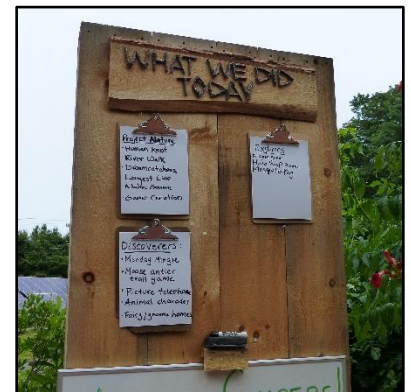 WHAT WE DID
TODAY
Project Nature
• Human Knot
River Walk
Dreamcatchers
Longest Line
Game Creation
Explorers
Discoverers:
• Monday Mingle
• Moose antler
trail game
• Picture telephone
• Animal charades
• Fairy/gnome homes
CAMPERS!